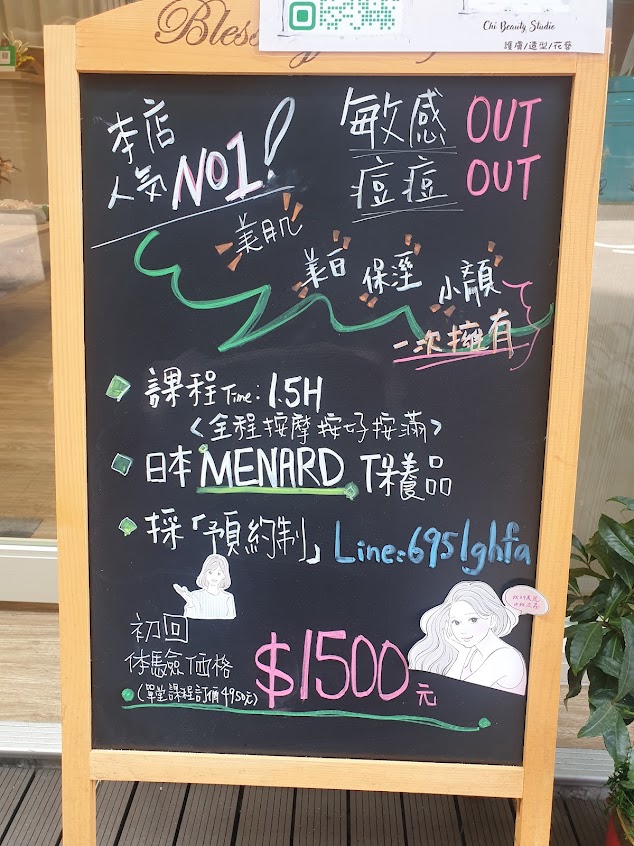 Chi Beauty Studio
護膚/造型/花藝
本店
人氣 NO1!
敏感 OUT
痘痘 OUT
美肌
美白 保溼 小顏
一次擁有
課程 Time: 1.5H
<全程按摩 按好按滿>
日本 MENARD 保養品
採「預約制」 Line:6951ghfa
初回
体驗価格
(單堂課程訂價4950元)
$1500元